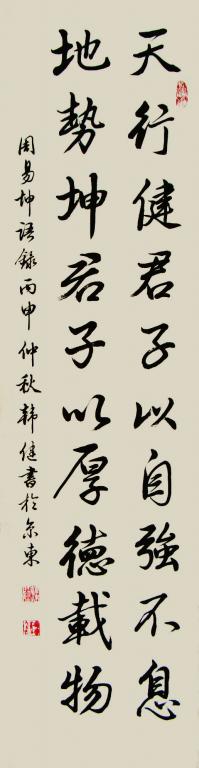 天行健君子以自強不息
地勢坤君子以厚德載物
周易坤語錄丙申仲秋韓健書於京東